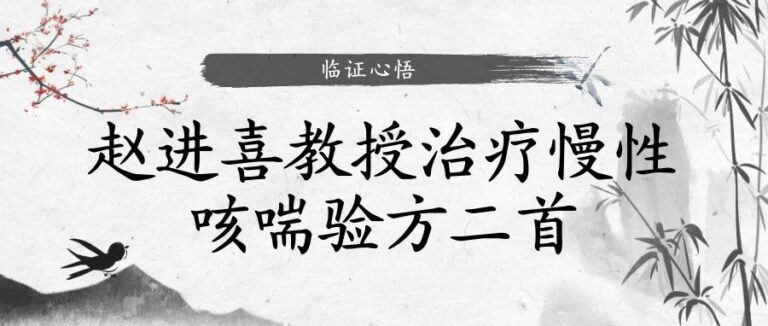 临证心悟
赵进喜教授治疗慢性
咳喘验方二首